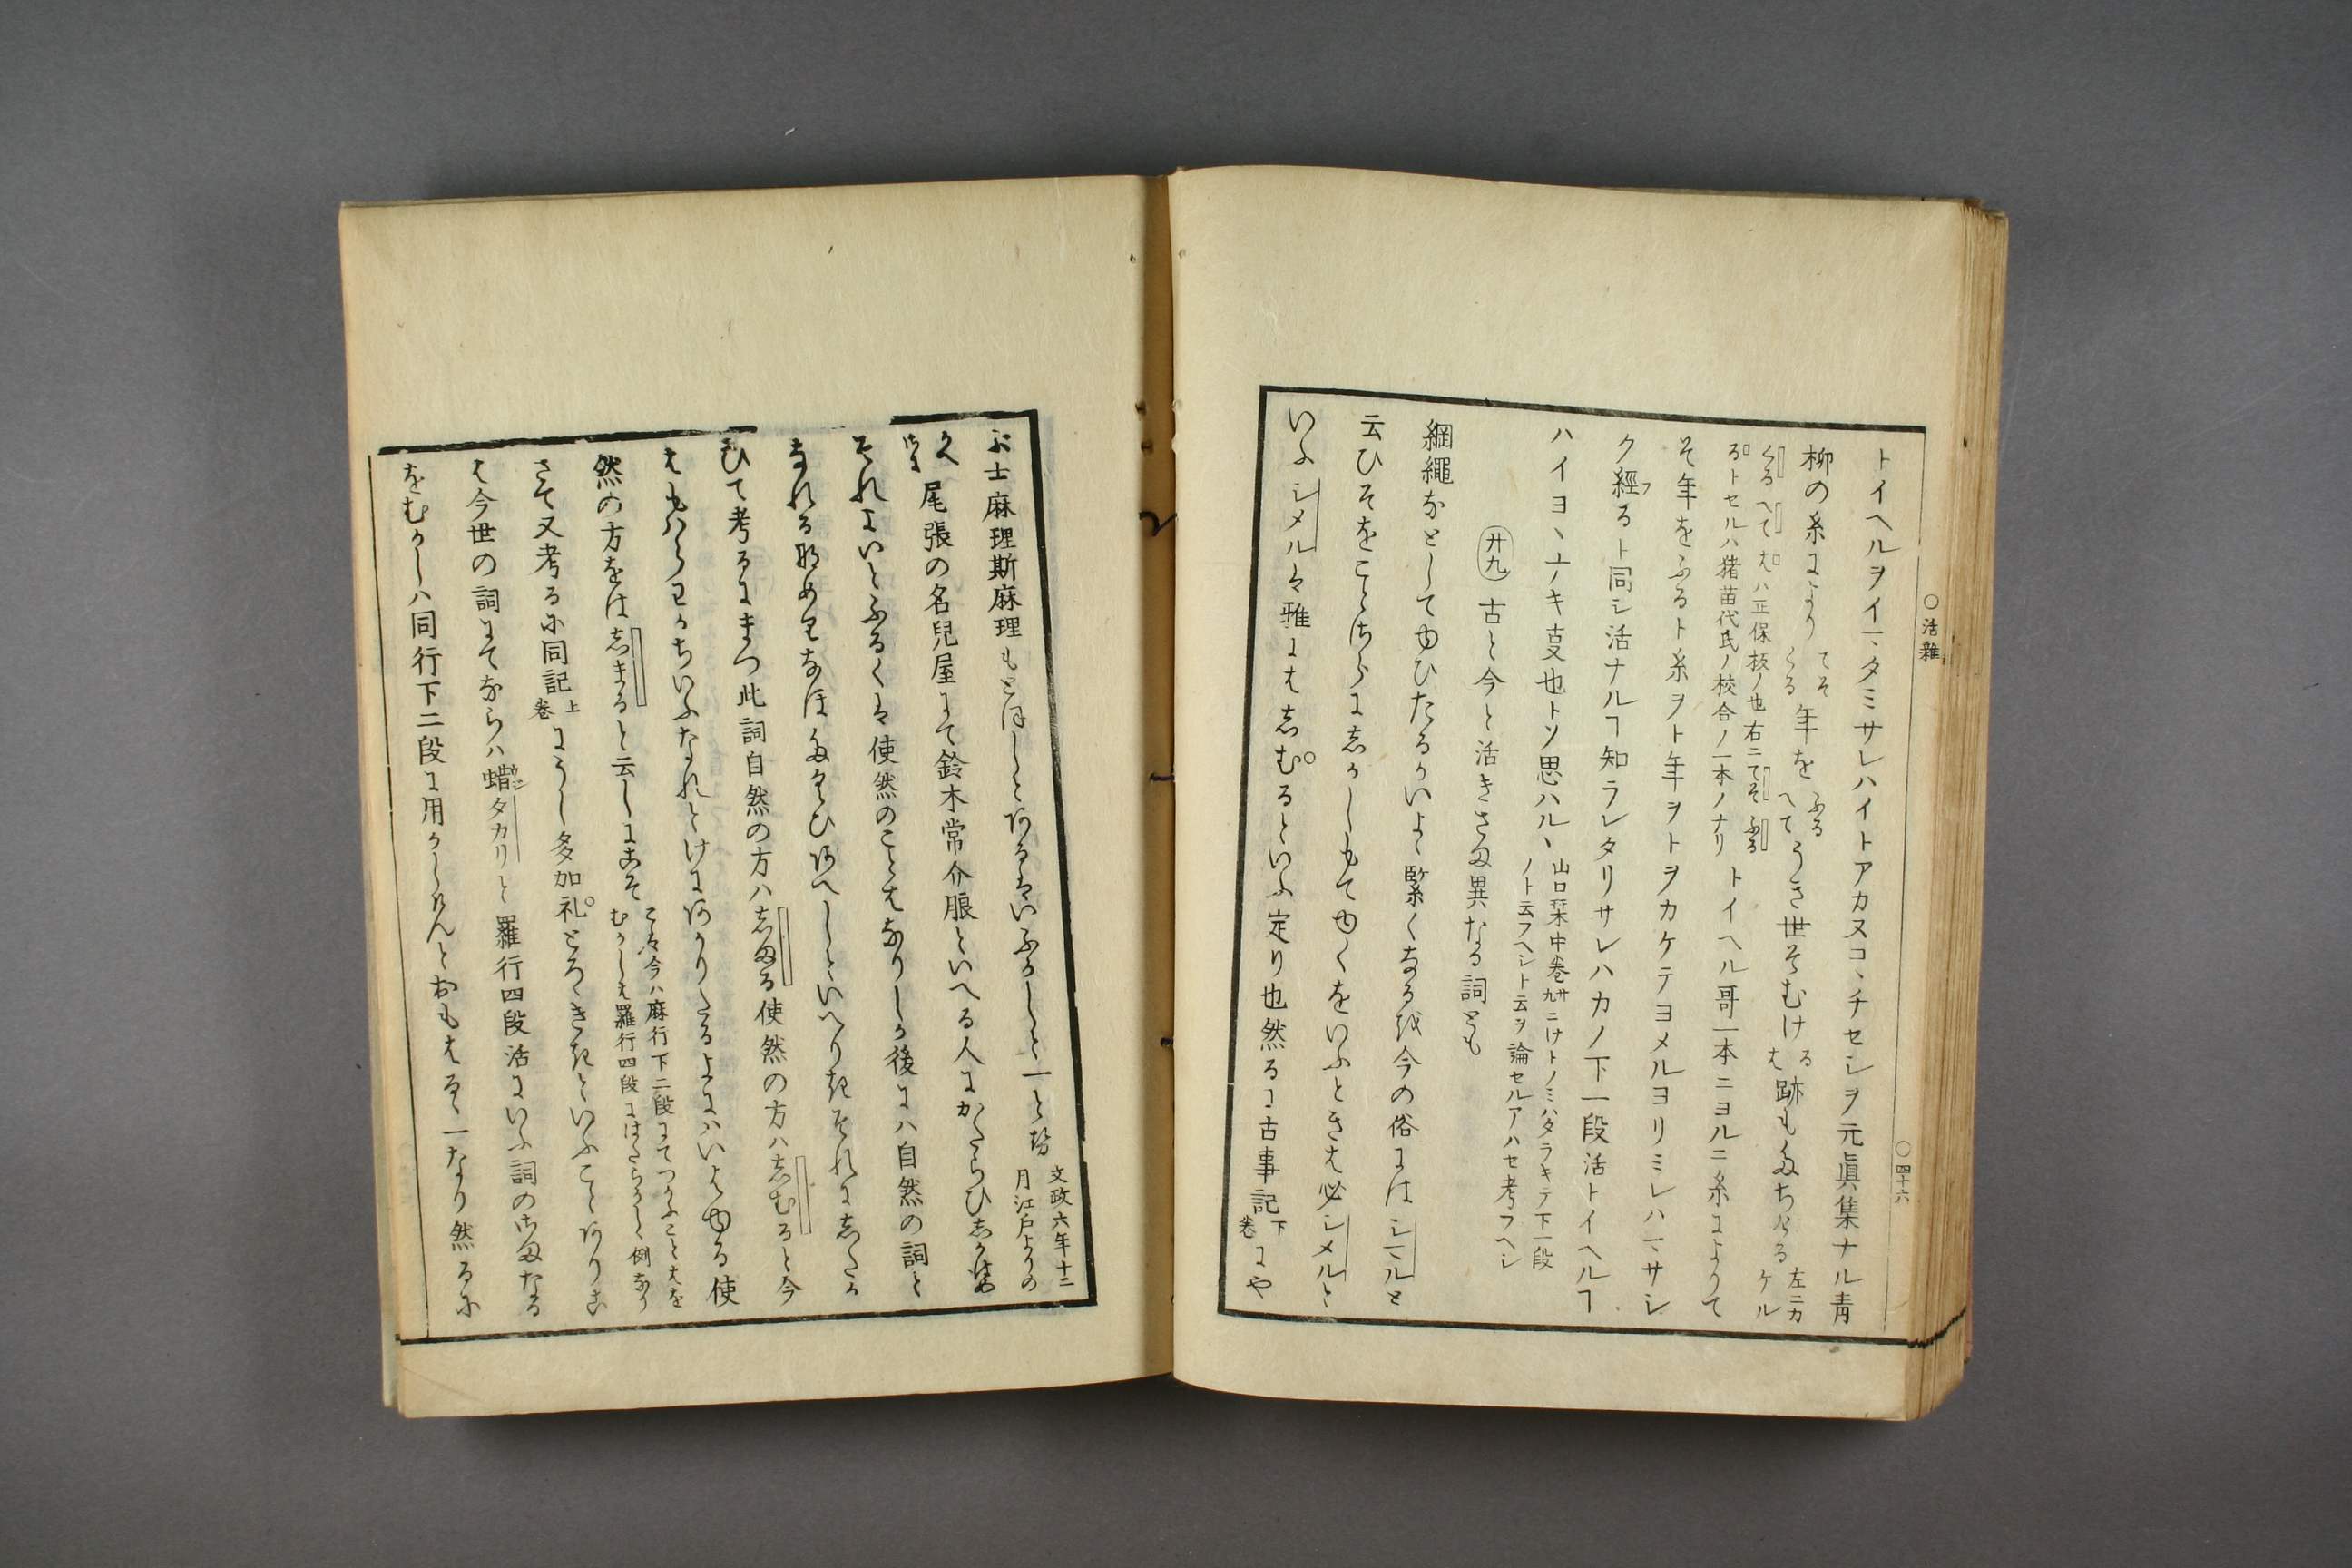 ○活雜
○四十六
トイヘルヲイマヽタミサレハイトアカヌコヽチセシヲ元眞集ナル青
柳の糸により
てそ
くる
年を
ふる
へて
うき世そむけ
る
は
跡もたちける
左ニカ
ケル
くるへてはハ正保板ノ也右ニてそふる
るトセルハ猪苗代氏ノ校合ノ一本ノナリ
トイヘル哥一本ニヨルニ糸によりて
そ年をふるト糸ヲト年ヲトヲカケテヨメルヨリミレハマヽサシ
ク經るト同シ活ナルヿ知ラレタリサレハカノ下一段活トイヘルヿ
ハイヨヽナキ事也トソ思ハルヽ
山口栞中巻廿九ニけトノミハタラキテ下一段
ノト云フヘシト云ヲ論セルアハセ考フヘシ
廿九
古と今と活きさま異なる詞とも
綱繩なとしてゆひたるかいよゝ緊くなるを今の俗にはシマルと
云ひそをことさらにしかしもてゆくをいふときは必シメルと
いふシメルは雅にはしむるといふ定り也然るに古事記
下
巻
にや
ふ士麻理斯麻理もとほしとあるはいふかしと一とせ
文政六年十二
月江戸よりの
尾張の名兒屋にて鈴木常介腹といへる人にかたらひしかは
それはいとふるくは使然のことはなりしか後には自然の詞と
なれるなめりなほたくひあへしといへりきそれにしたか
ひて考るにまつ此詞自然の方ハしまる使然の方ハしむると今
はもハらわかちいふなれとけにあかりたるよにハいはゆる使
然の方をはしまると云しにこそ
こは今ハ麻行下二段にてつかふことはを
むかしは羅行四段にはたらかしゝ例なり
さて又考るに同記
上
巻
にうし多加礼とろゝきてといふことあり
は今世の詞にてならハ蟻タカリと羅行四段活にいふ詞のさまなる
をむかしハ同行下二段に用かしけんとおもはるゝ一なり然るに